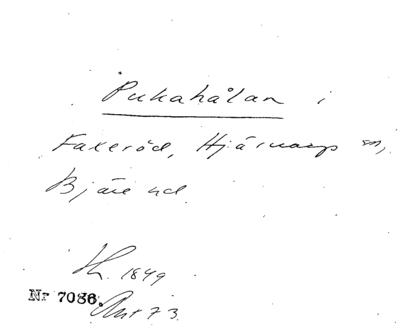 Pukahålan i
Faxeröd, Hjärnarp sn,
Bjäre hd.
1849
Nr 7086.
73.